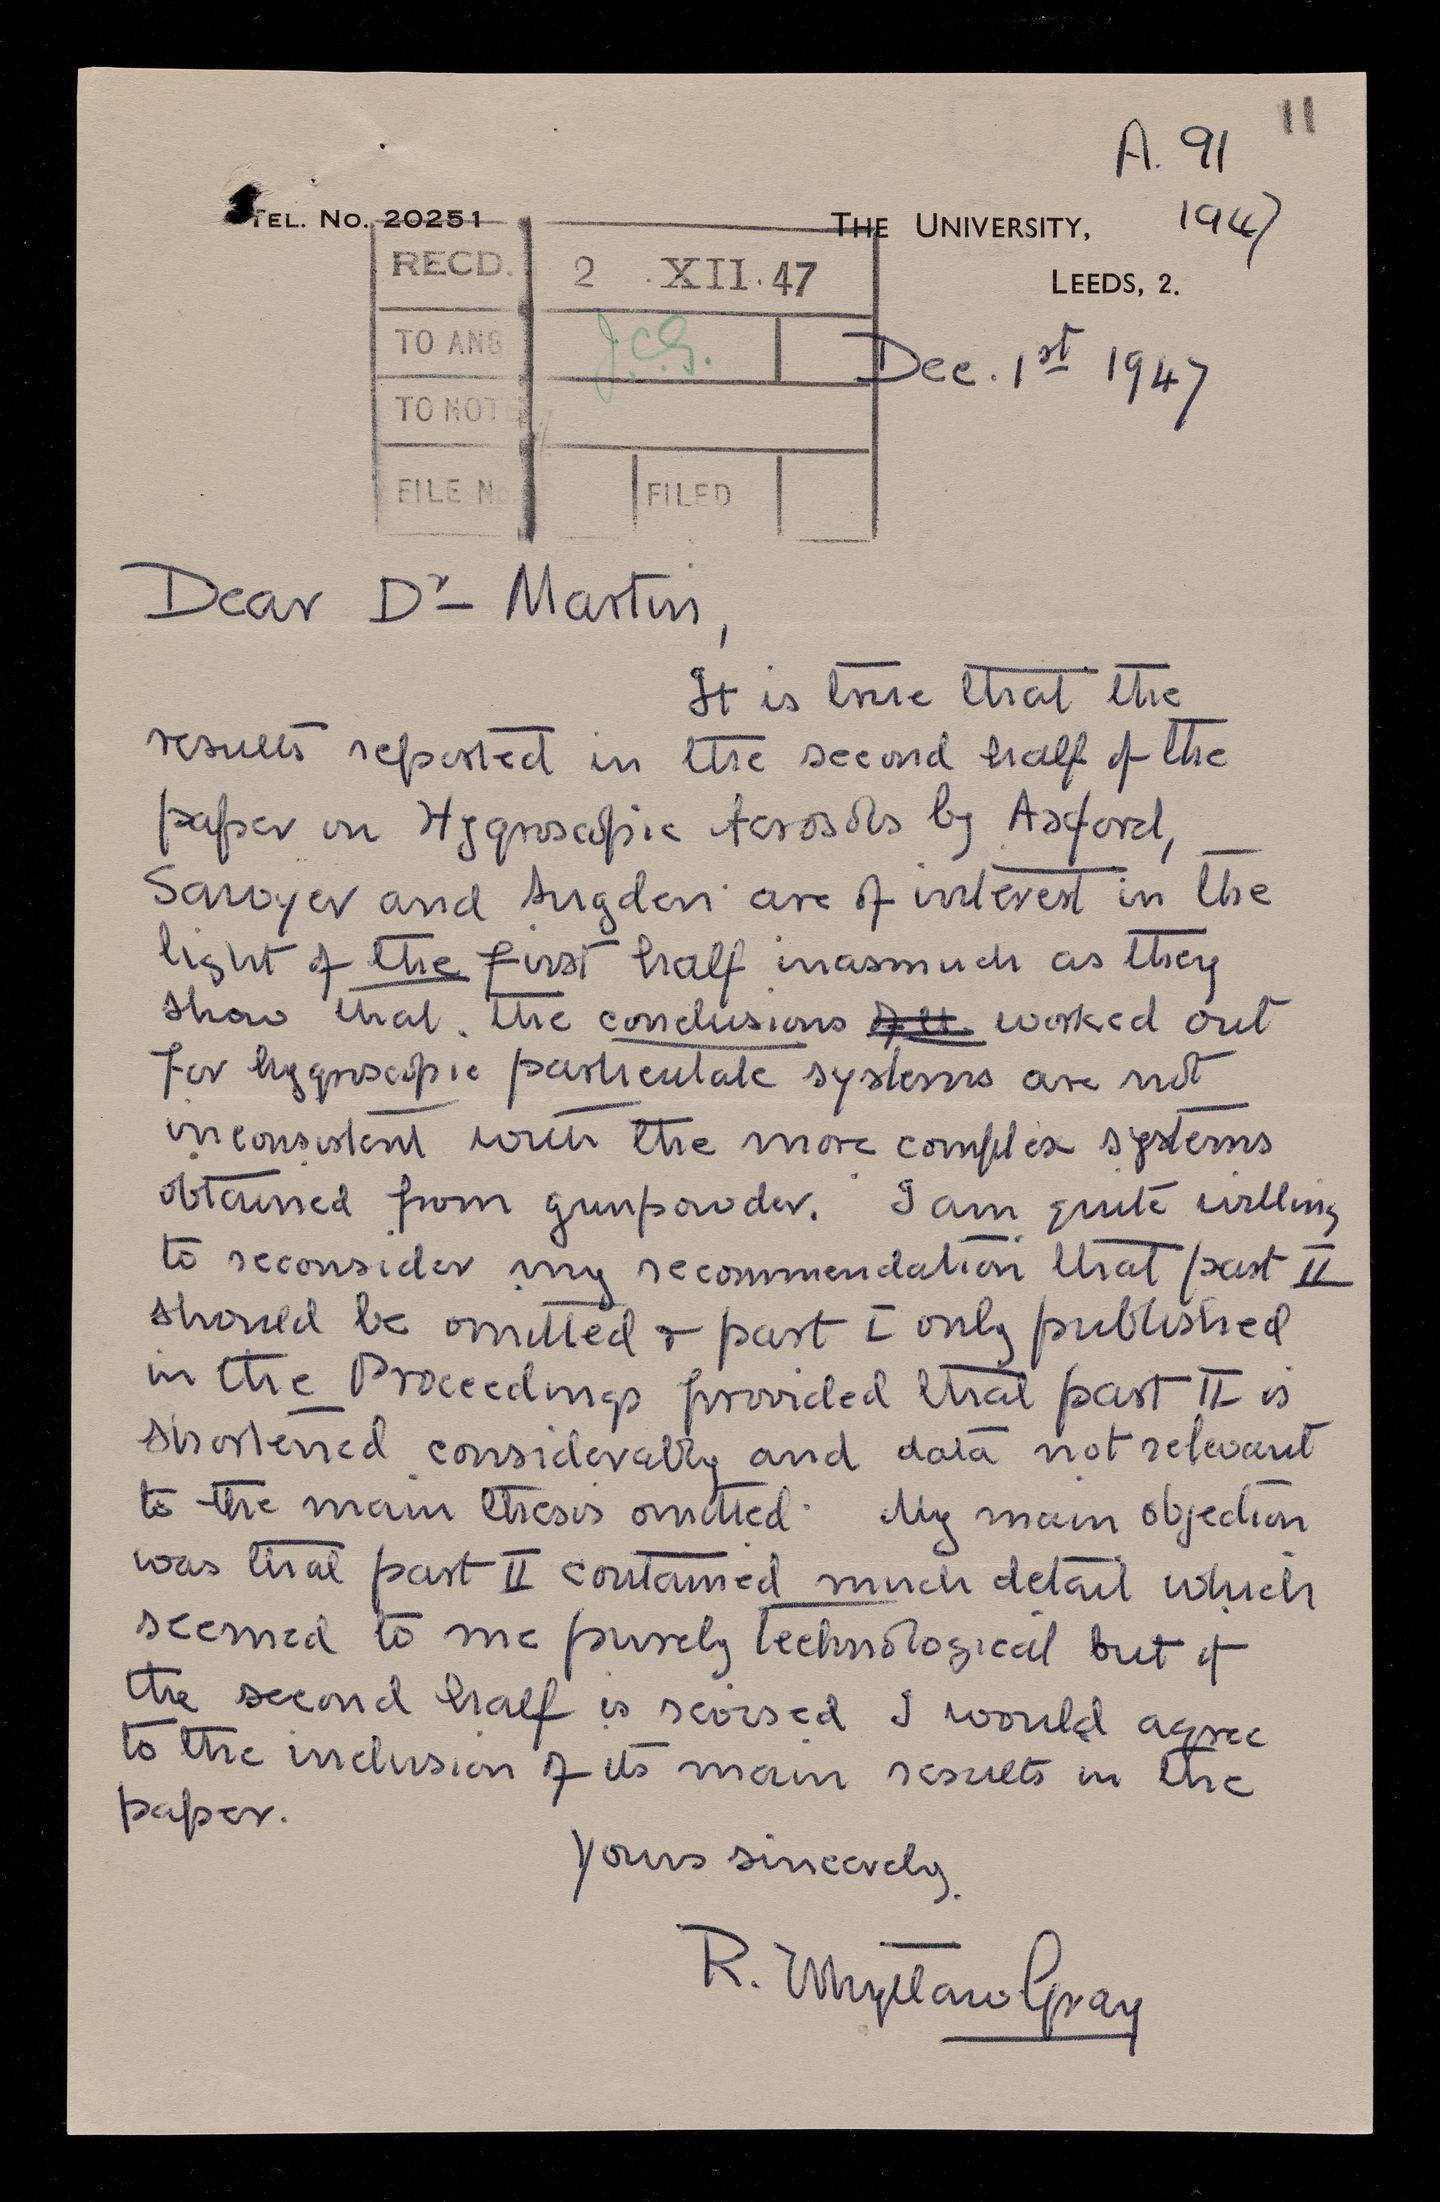 11
A. 91
TEL. NO. 20251
THE UNIVERSITY, 1947
LEEDS, 2.
RECD. 2 . XII . 47
TO ANS J.C.G.
TO NOTE
FILE No. FILED
Dec. 1st 1947
Dear Dr Martin,
It is true that the
results reported in the second half of the
paper on Hygroscopic Aerosols by Axford,
Sawyer and Sugden are of interest in the
light of the first half inasmuch as they
show that the conclusions worked out
for hygroscopic particulate systems are not
inconsistent with the more complex systems
obtained from gunpowder. I am quite willing
to reconsider my recommendation that part II
should be omitted & part I only published
in the Proceedings provided that part II is
shortened considerably and data not relevant
to the main thesis omitted. My main objection
was that part II contained much detail which
seemed to me purely technological but if
the second half is revised I would agree
to the inclusion of its main results in the
paper.
Yours sincerely.
R. Whytlaw Gray